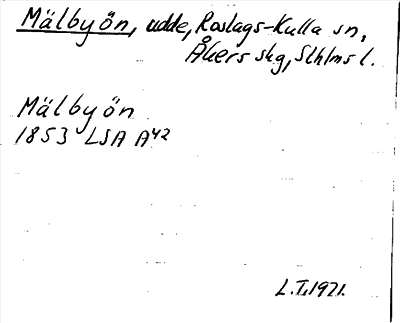 Mälbyön, udde, Roslags-Kulla sn,
Åkers skg, Sthlms l.
Mälbyön
1853 LSA A42
L.I. 1971.